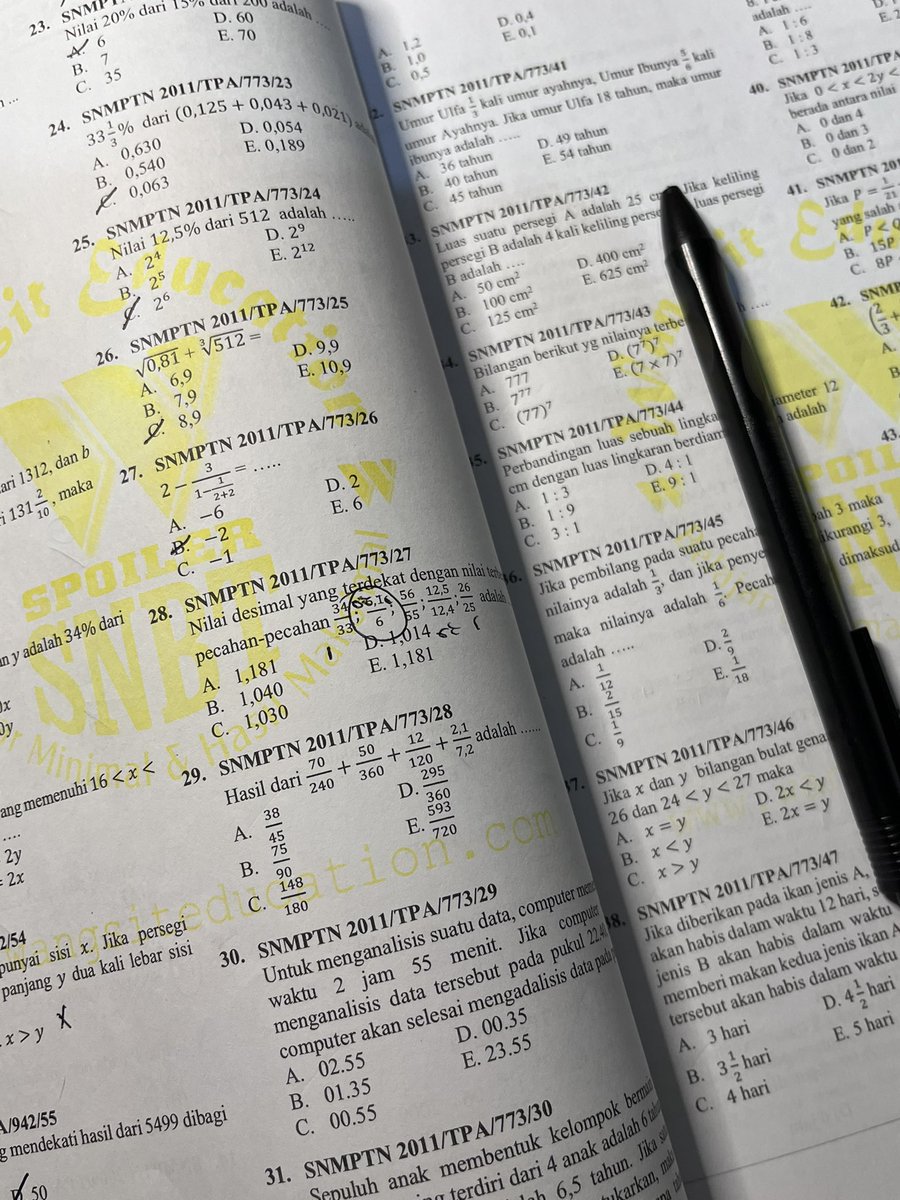 23. SNMPT
Nilai 20% dari 15% dari 200 adalah ....
A. 6
B. 7
C. 35
D. 60
E. 70
24. SNMPTN 2011/TPA/773/23
33 1/3% dari (0,125 + 0,043 + 0,021)
A. 0,630
B. 0,540
C. 0,063
D. 0,054
E. 0,189
25. SNMPTN 2011/TPA/773/24
Nilai 12,5% dari 512 adalah .....
A. 2⁴
B. 2⁵
C. 2⁶
D. 2⁹
E. 2¹²
26. SNMPTN 2011/TPA/773/25
√0,81 + ∛512 =
A. 6,9
B. 7,9
C. 8,9
D. 9,9
E. 10,9
27. SNMPTN 2011/TPA/773/26
2 − 3/(1 − 1/(2+2)) = .....
A. −6
B. −2
C. −1
D. 2
E. 6
28. SNMPTN 2011/TPA/773/27
Nilai desimal yang terdekat dengan nilai
pecahan-pecahan 34/33; 6,1/6; 56/55; 12,5/12,4; 26/25 adalah
A. 1,181
B. 1,040
C. 1,030
D. 1,014
E. 1,181
29. SNMPTN 2011/TPA/773/28
Hasil dari 70/240 + 50/360 + 12/120 + 2,1/7,2 adalah ......
A. 38/45
B. 75/90
C. 148/180
D. 295/360
E. 593/720
30. SNMPTN 2011/TPA/773/29
Untuk menganalisis suatu data, computer
waktu 2 jam 55 menit. Jika computer
menganalisis data tersebut pada pukul 22.4
computer akan selesai mengadalisis data pada
A. 02.55
B. 01.35
C. 00.55
D. 00.35
E. 23.55
31. SNMPTN 2011/TPA/773/30
Sepuluh anak membentuk kelompok bermain
terdiri dari 4 anak adalah 6
6,5 tahun. Jika
ari 1312, dan b
i 131 2/10, maka
y adalah 34% dari
0x
0y
ang memenuhi 16 < x <
....
2y
= 2x
2/54
punyai sisi x. Jika persegi
panjang y dua kali lebar sisi
x > y
A/942/55
mendekati hasil dari 5499 dibagi
50
A. 1,2
B. 1,0
C. 0,5
D. 0,4
E. 0,1
2. SNMPTN 2011/TPA/773/41
Umur Ulfa 1/3 kali umur ayahnya, Umur Ibunya 5/6 kali
umur Ayahnya. Jika umur Ulfa 18 tahun, maka umur
ibunya adalah .....
A. 36 tahun
B. 40 tahun
C. 45 tahun
D. 49 tahun
E. 54 tahun
3. SNMPTN 2011/TPA/773/42
Luas suatu persegi A adalah 25 Jika keliling
persegi B adalah 4 kali keliling luas persegi
B adalah ....
A. 50 cm²
B. 100 cm²
C. 125 cm²
D. 400 cm²
E. 625 cm²
4. SNMPTN 2011/TPA/773/43
Bilangan berikut yg nilainya
A. 777
B. 7⁷⁷
C. (77)⁷
D. (7⁷)⁷
E. (7 × 7)⁷
5. SNMPTN 2011/TPA/773/44
Perbandingan luas sebuah ameter 12
cm dengan luas lingkaran adalah
A. 1 : 3
B. 1 : 9
C. 3 : 1
D. 4 : 1
E. 9 : 1
36. SNMPTN 2011/TPA/773/45
Jika pembilang pada suatu 3 maka
nilainya adalah 1/3, dan jika ikurangi 3,
maka nilainya adalah dimaksud
adalah .....
A. 1/12
B. 2/15
C. 1/9
D. 2/9
E. 1/18
37. SNMPTN 2011/TPA/773/46
Jika x dan y bilangan bulat
26 dan 24 < y < 27 maka
A. x = y
B. x < y
C. x > y
D. 2x < y
E. 2x = y
38. SNMPTN 2011/TPA/773/47
Jika diberikan pada ikan jenis A,
akan habis dalam waktu 12 hari,
jenis B akan habis dalam waktu
memberi makan kedua jenis ikan A
tersebut akan habis dalam waktu
A. 3 hari
B. 3 1/2 hari
C. 4 hari
D. 4 1/2 hari
E. 5 hari
adalah ....
A. 1 : 6
B. 1 : 8
C. 1 : 3
40. SNMPTN 2011/TPA
Jika 0 < x < 2y <
berada antara nilai
A. 0 dan 4
B. 0 dan 3
C. 0 dan 2
41. SNMPTN 20
Jika P = 1/21
yang salah
A. P < Q
B. 15P
C. 8P
42. SNMP
A.
B.
43.
SPOILER
SNBT